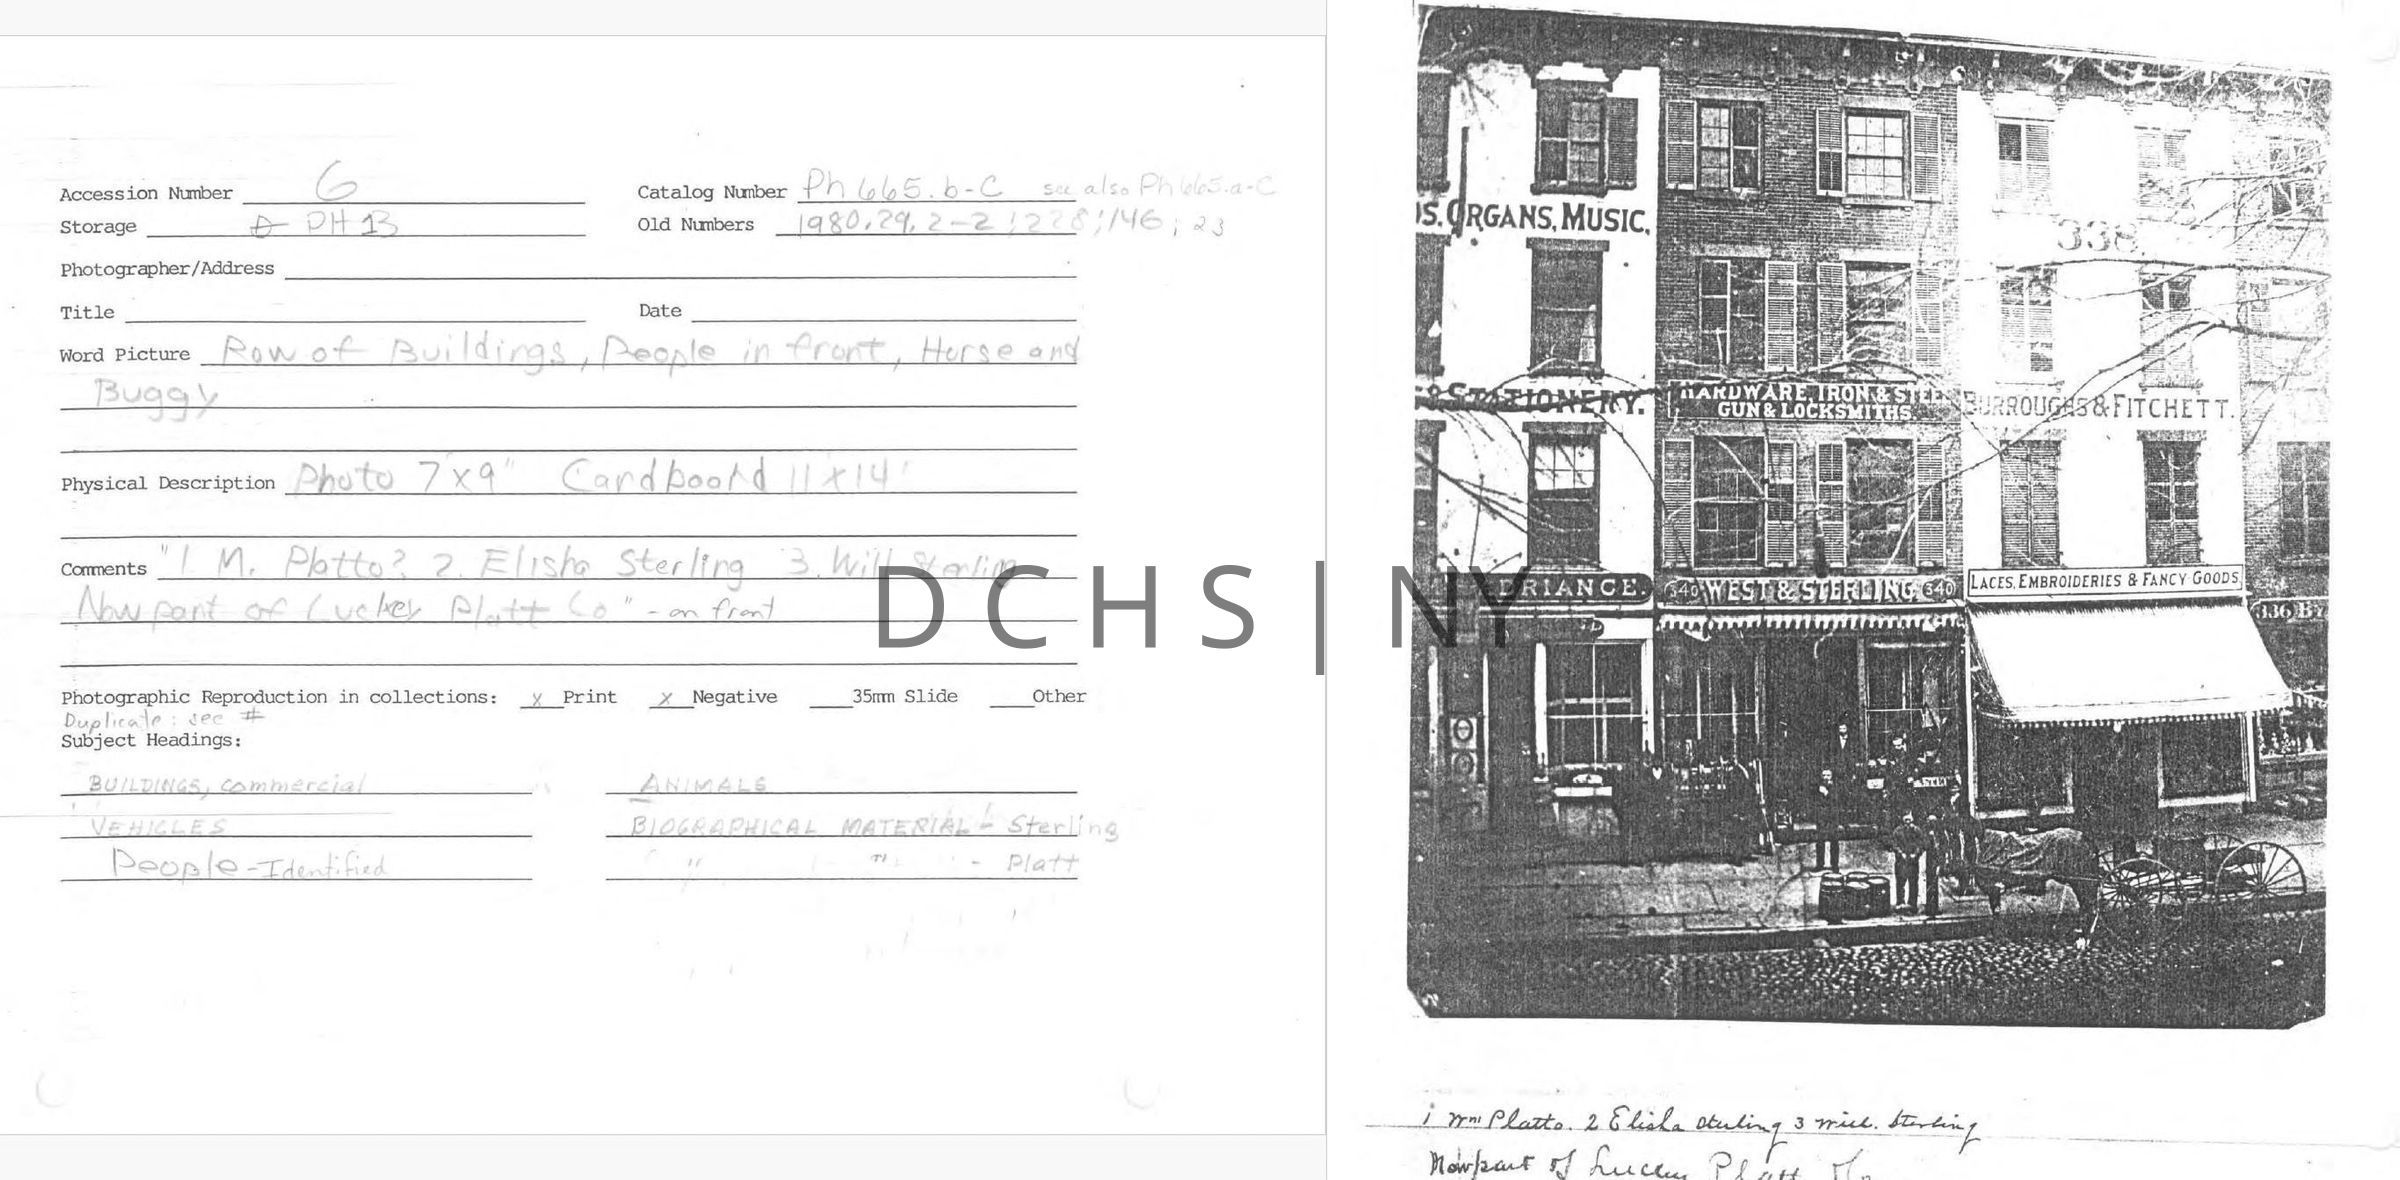 Accession Number 6
Catalog Number Ph 665.b-C see also Ph 665.a-C
Storage PH 13
Old Numbers 1980.29.2-2; 228; 146; 23
Photographer/Address
Title
Date
Word Picture Row of Buildings, People in front, Horse and
Buggy
Physical Description Photo 7"x9" Cardboard 11x14"
Comments "1. M. Platto? 2. Elisha Sterling 3. Will Sterling
Now part of Luckey Platt Co" - on front
Photographic Reproduction in collections: x Print x Negative 35mm Slide Other
Duplicate: see #
Subject Headings:
BUILDINGS, commercial
ANIMALS
VEHICLES
BIOGRAPHICAL MATERIAL - Sterling
People - Identified
" " - Platt
DCHS|NY
S. ORGANS, MUSIC,
338
& STATIONERY.
HARDWARE, IRON & STEE
GUN & LOCKSMITHS.
BURROUGHS & FITCHETT.
DRIANCE.
340 WEST & STERLING 340
LACES, EMBROIDERIES & FANCY GOODS
336
1 Wm Platto. 2 Elisha Sterling 3 Will. Sterling
Now part of Luckey Platt Co